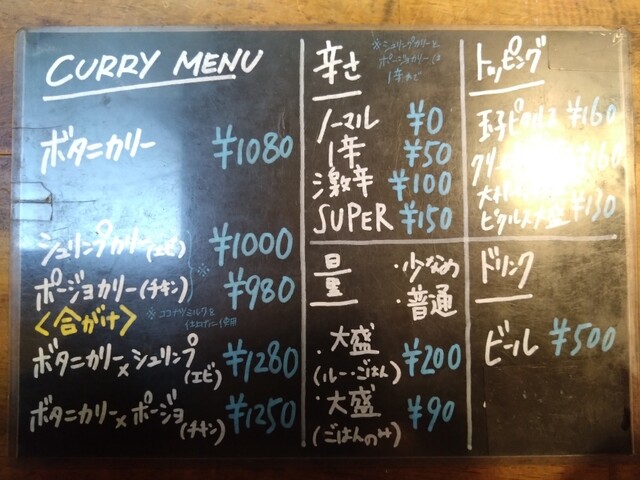 CURRY MENU
ボタニカリー ¥1080
シュリンプカリー(エビ) ¥1000
ポージョカリー(チキン) ¥980
※
※ココナツミルクを
仕上げに使用
<合がけ>
ボタニカリー×シュリンプ(エビ) ¥1280
ボタニカリー×ポージョ(チキン) ¥1250
辛さ
※シュリンプカリーと
ポージョカリーは
1辛まで
ノーマル ¥0
1辛 ¥50
激辛 ¥100
SUPER ¥150
量
・少なめ
・普通
・大盛(ルー・ごはん) ¥200
・大盛(ごはんのみ) ¥90
トッピング
玉子ピクルス ¥160
クリー ¥160
ピクルス大盛 ¥130
ドリンク
ビール ¥500